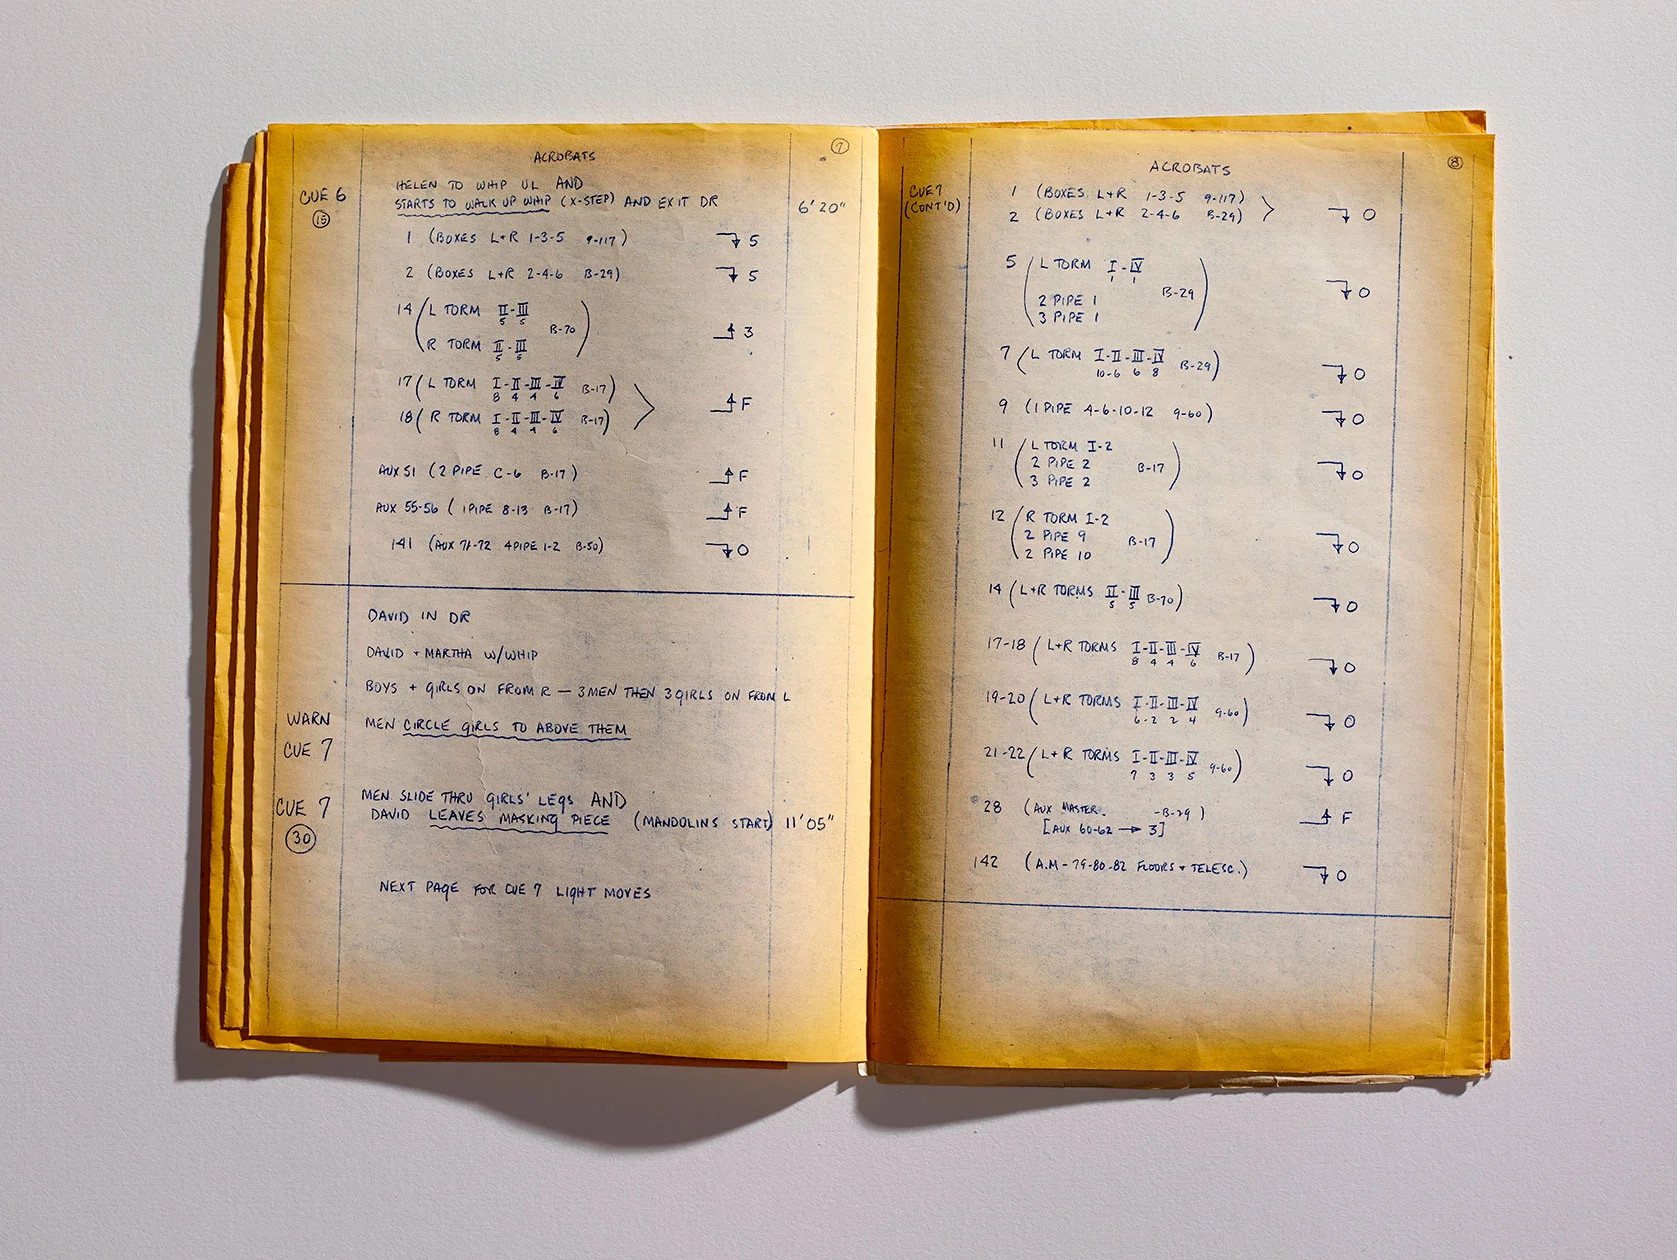 7
ACROBATS
CUE 6
15
HELEN TO WHIP UL AND
STARTS TO WALK UP WHIP (X-STEP) AND EXIT DR
6'20"
1 (BOXES L+R 1-3-5 9-117) 5
2 (BOXES L+R 2-4-6 B-29) 5
14 (L TORM II-III
5 5
B-70) 3
R TORM II-III
5 5
17 (L TORM I-II-III-IV B-17)
8 4 4 6
F
18 (R TORM I-II-III-IV B-17)
8 4 4 6
AUX 51 (2 PIPE C-6 B-17) F
AUX 55-56 (1 PIPE 8-13 B-17) F
141 (AUX 71-72 4 PIPE 1-2 B-50) 0
DAVID IN DR
DAVID + MARTHA W/WHIP
BOYS + GIRLS ON FROM R — 3 MEN THEN 3 GIRLS ON FROM L
WARN
CUE 7
MEN CIRCLE GIRLS TO ABOVE THEM
CUE 7
30
MEN SLIDE THRU GIRLS' LEGS AND
DAVID LEAVES MASKING PIECE (MANDOLINS START) 11'05"
NEXT PAGE FOR CUE 7 LIGHT MOVES
8
ACROBATS
CUE 7
(CONT'D)
1 (BOXES L+R 1-3-5 9-117)
2 (BOXES L+R 2-4-6 B-29) > 0
5 (L TORM I-IV
1 1
B-29) 0
2 PIPE 1
3 PIPE 1
7 (L TORM I-II-III-IV B-29) 0
10-6 6 8
9 (1 PIPE 4-6-10-12 9-60) 0
11 (L TORM I-2
2 PIPE 2 B-17) 0
3 PIPE 2
12 (R TORM I-2
2 PIPE 9 B-17) 0
2 PIPE 10
14 (L+R TORMS II-III B-70) 0
5 5
17-18 (L+R TORMS I-II-III-IV B-17) 0
8 4 4 6
19-20 (L+R TORMS I-II-III-IV 9-60) 0
6-2 2 4
21-22 (L+R TORMS I-II-III-IV 9-60) 0
7 3 3 5
28 (AUX MASTER -B-29) F
[AUX 60-62 → 3]
142 (A.M-79-80-82 FLOORS + TELESC.) 0